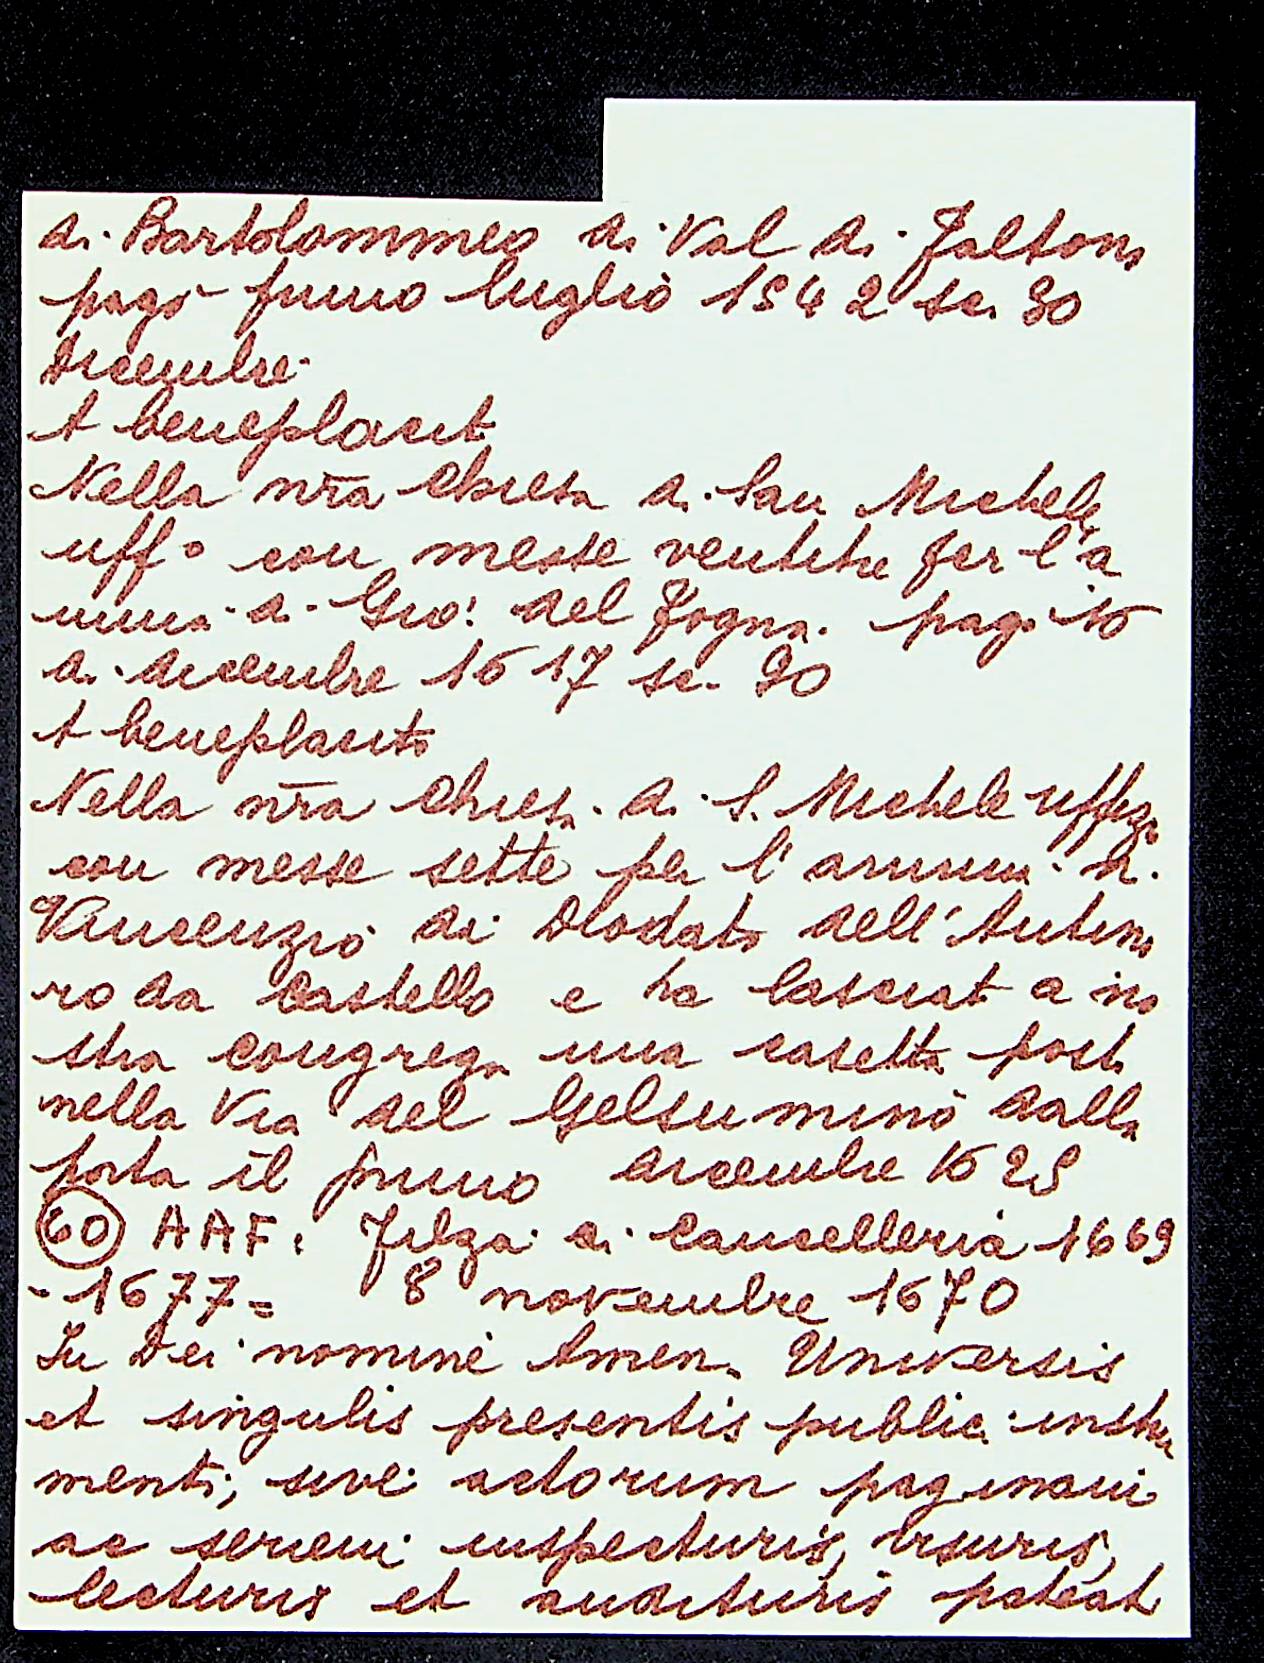 di Bartolommeo di Val di Faltona
pagò primo luglio 1542 sc. 30
Dicembre
A beneplacit.
Nella nr̄a Chiesa di San Michele
uff° con messe ventitre per l'a
nima di Gio: del Fogna. pagò 10
di dicembre 1617 sc. 90
A beneplacito
Nella nr̄a Chiesa di S. Michele uffizo
con messe sette per l'anima di
Vincenzio di Diodato dell'Antin
ro da Castello e ha lasciato a no
stra congrega una casetta posta
nella Via del Gelsumino dalla
porta il primo dicembre 1625
60 AAF: Filza di Cancelleria 1669
-1677= 8 novembre 1670
In Dei nomine Amen. Universis
et singulis presentis publici instru
menti, sive actorum paginam
ac seriem inspecturis, visuris,
lecturis et audituris pateat